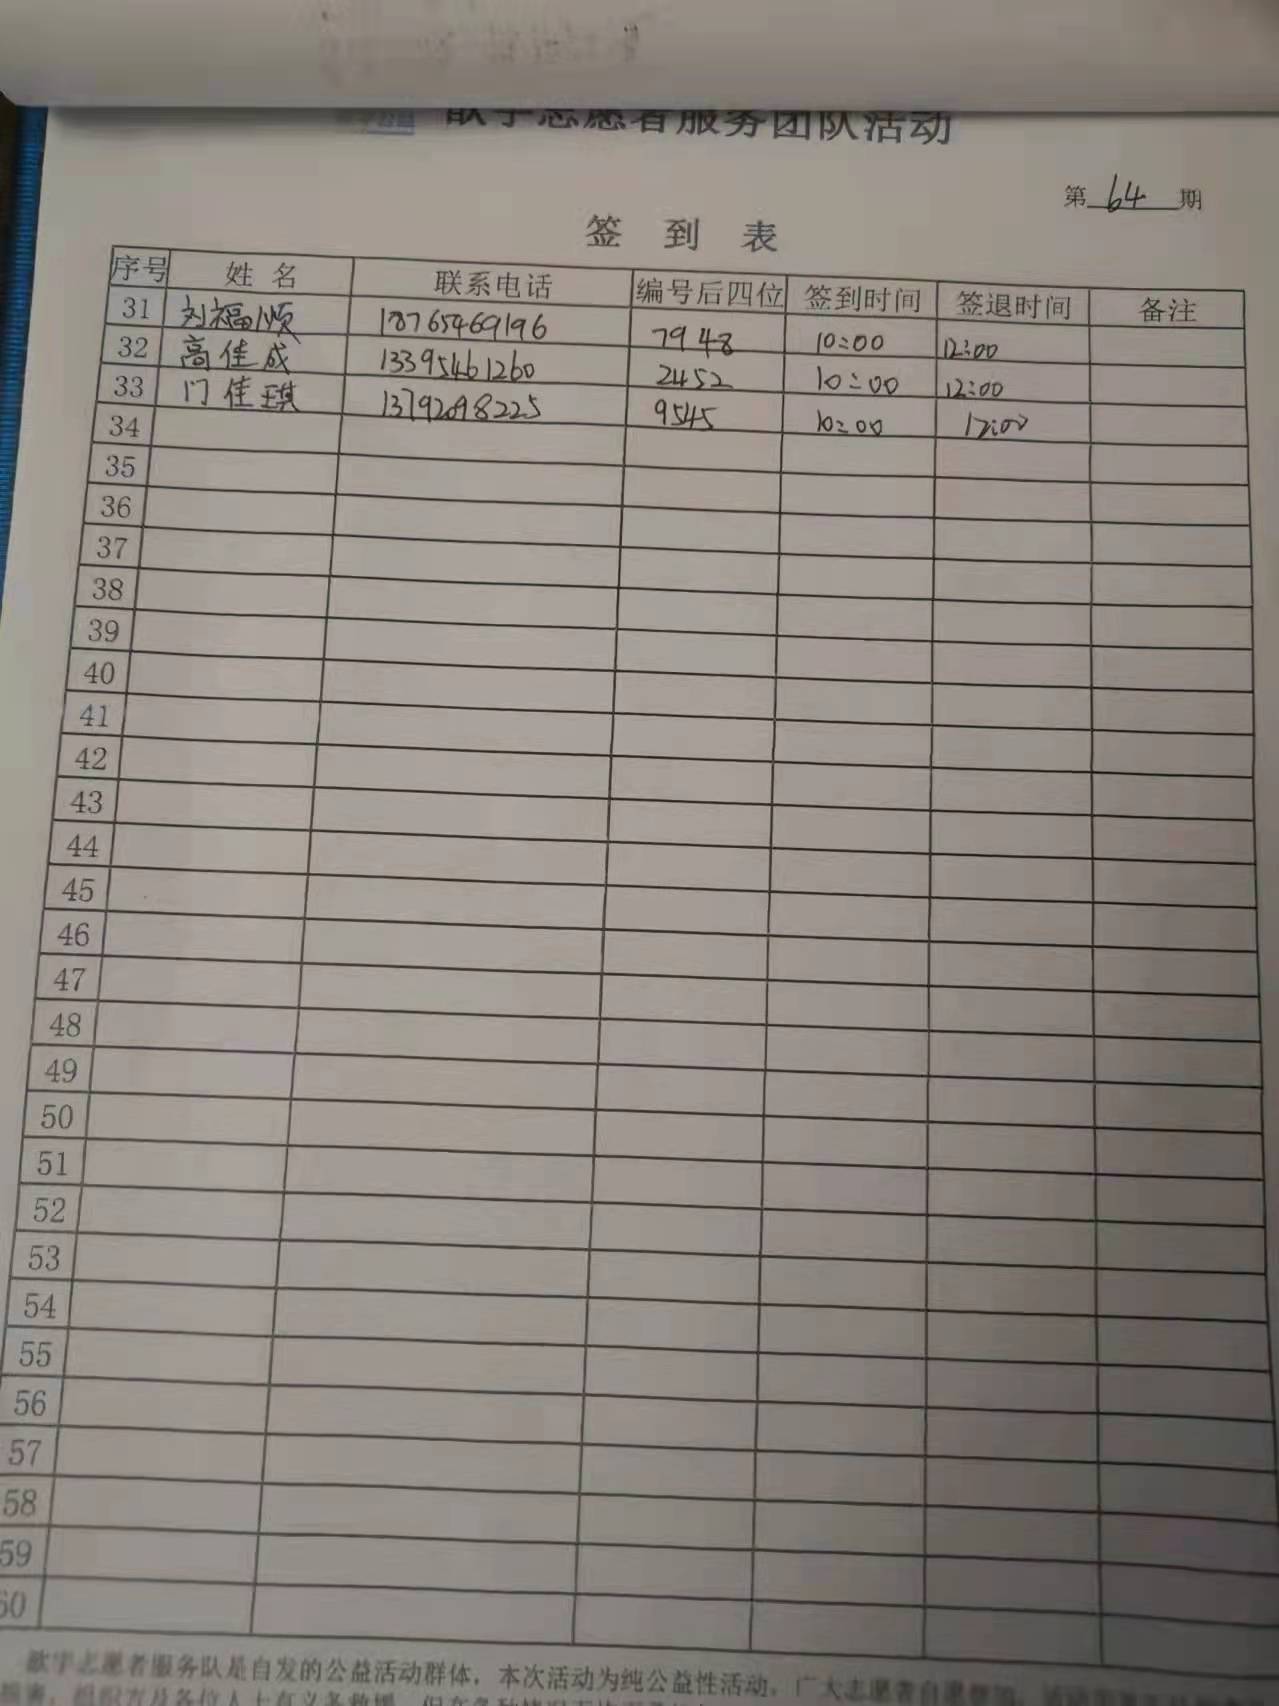 志愿者服务团队活动
第 64 期
签 到 表
序号 姓名 联系电话 编号后四位 签到时间 签退时间 备注
31 刘福顺 18765469196 7948 10:00 12:00
32 高佳成 13395461260 2452 10:00 12:00
33 门佳琪 13792098225 9545 10:00 12:00
34
35
36
37
38
39
40
41
42
43
44
45
46
47
48
49
50
51
52
53
54
55
56
57
58
59
60
志愿者服务队是自发的公益活动群体，本次活动为纯公益性活动，广大志愿者自愿参加，活动